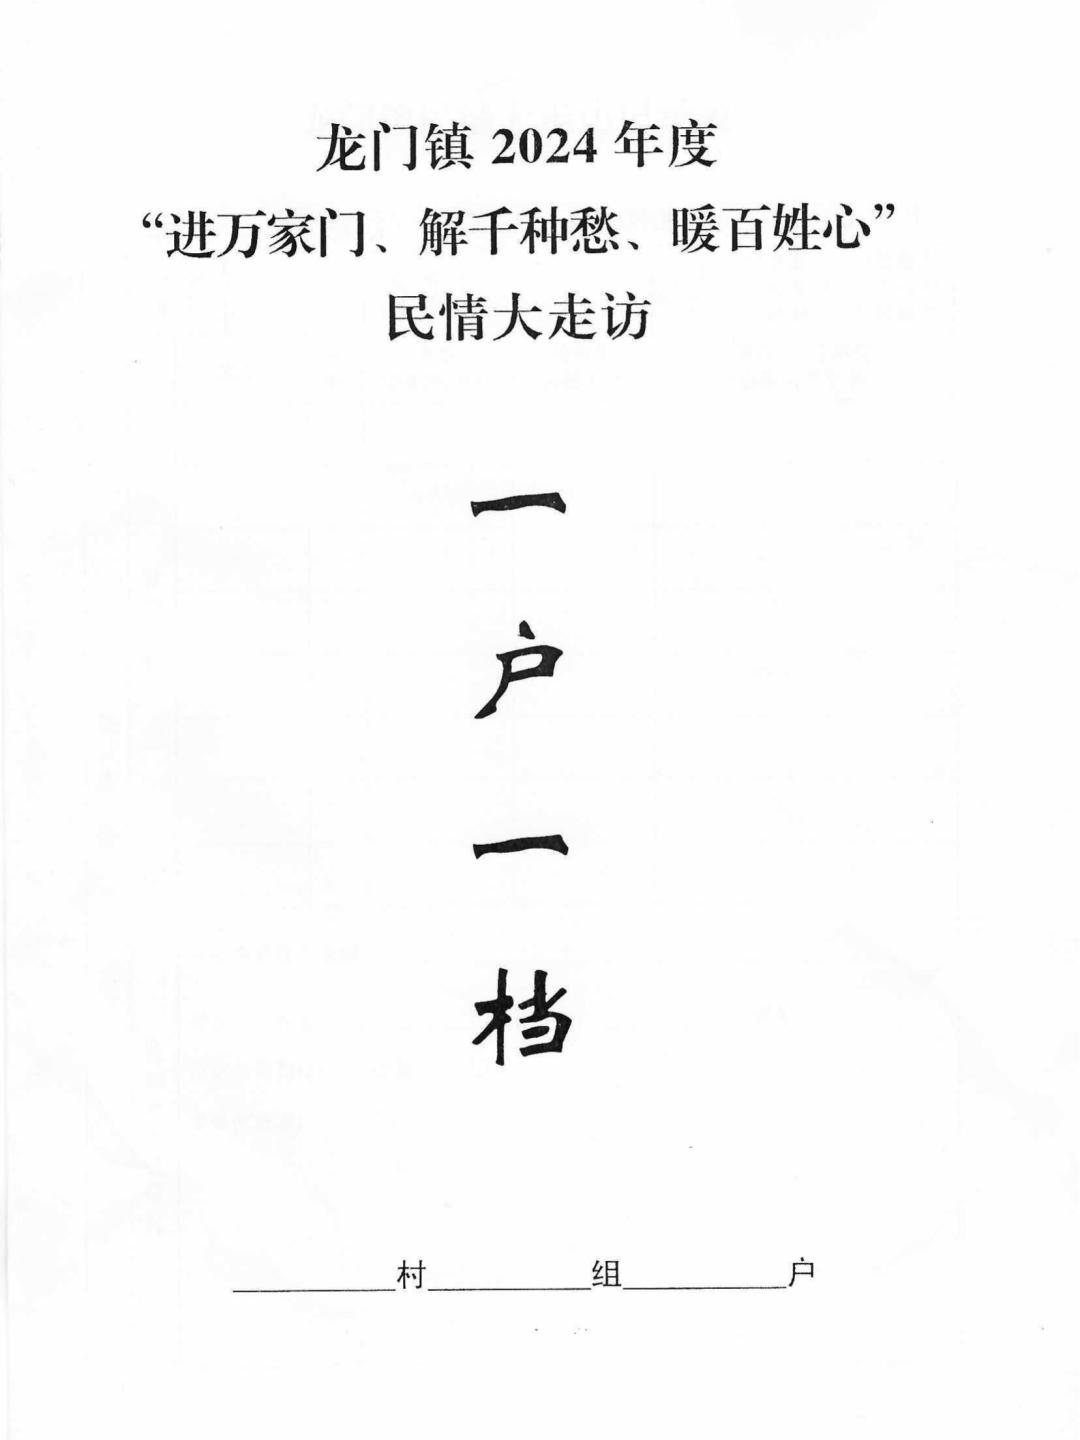 龙门镇 2024 年度
“进万家门、解千种愁、暖百姓心”
民情大走访
一
户
一
档
________村________组________户